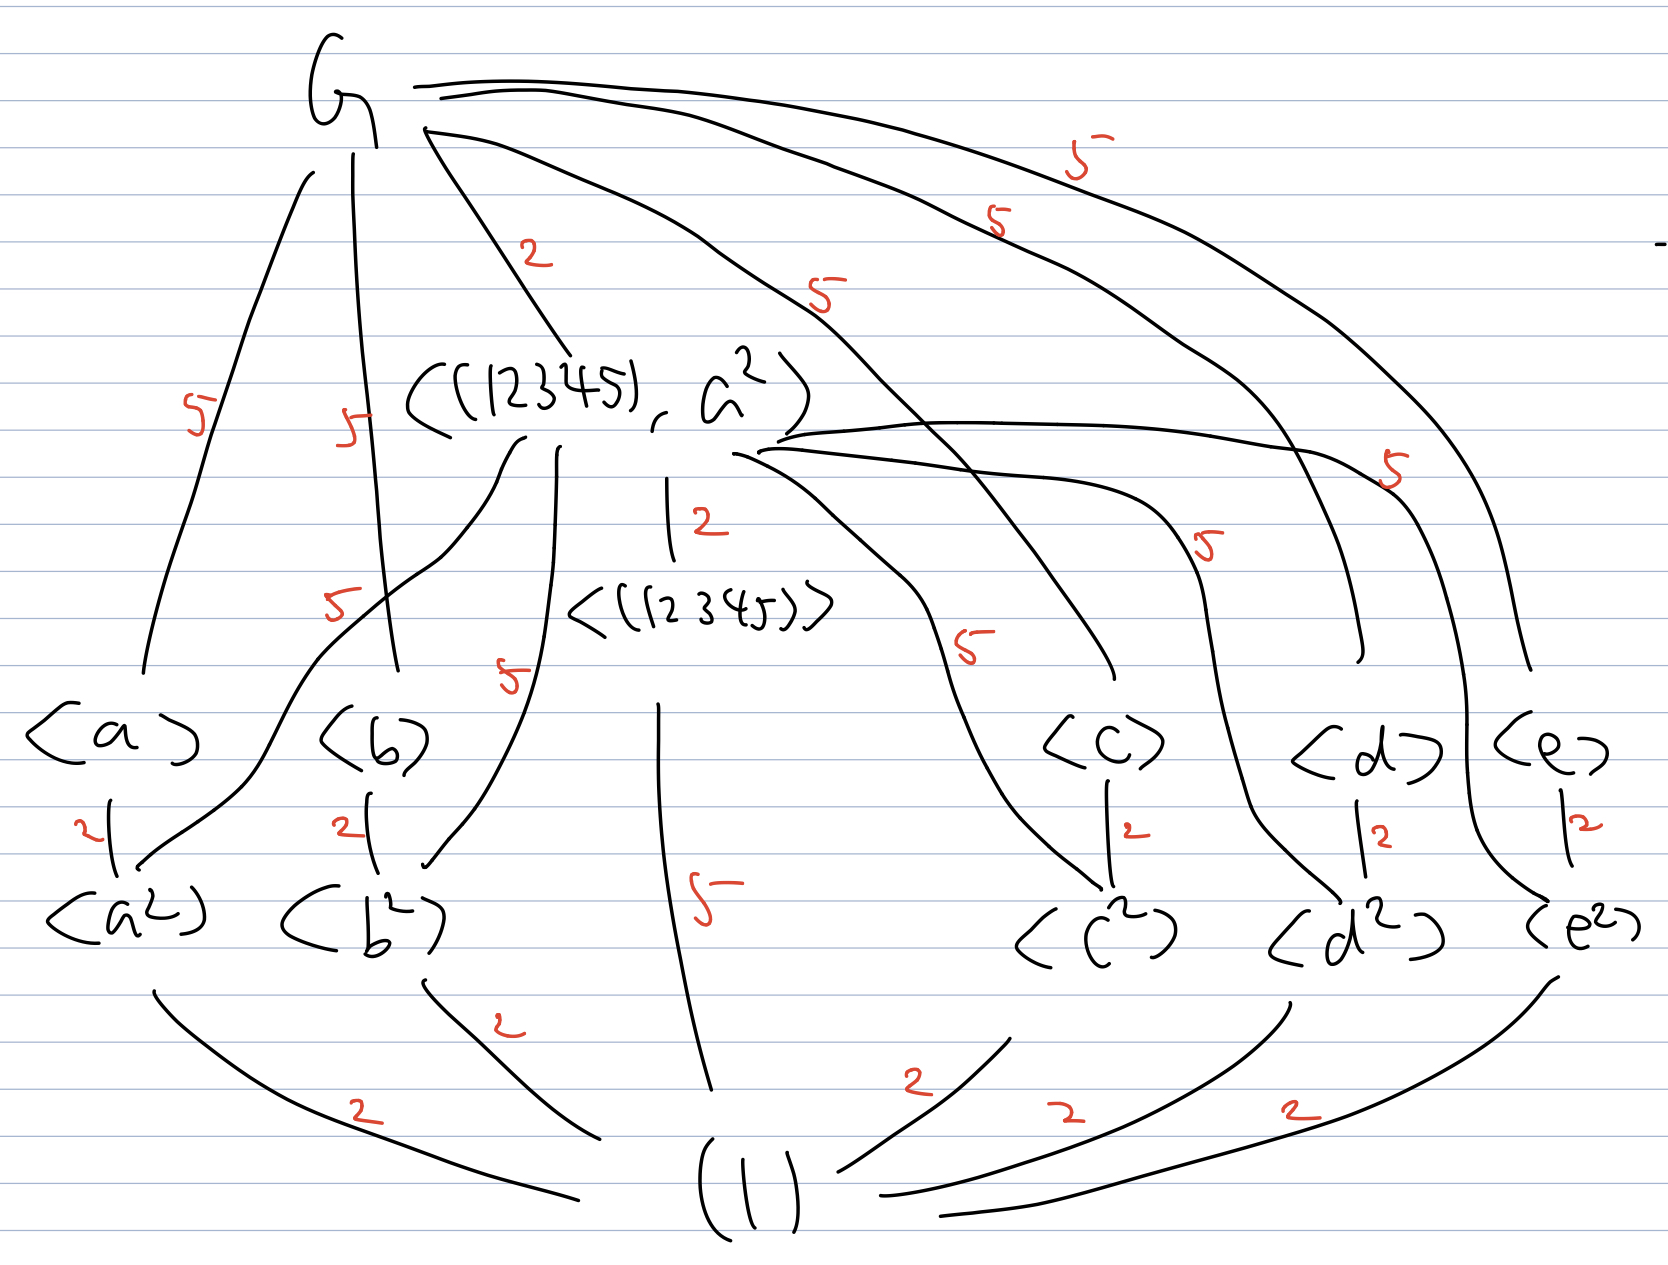 G
5
5
2
5
5
5
((12345), a²)
5
5
2
5
5
5
<(12345)>
<a>
<b>
<c>
<d>
<e>
2
2
5
2
2
2
<a²>
<b²>
<c²>
<d²>
<e²>
2
2
2
2
2
(1)